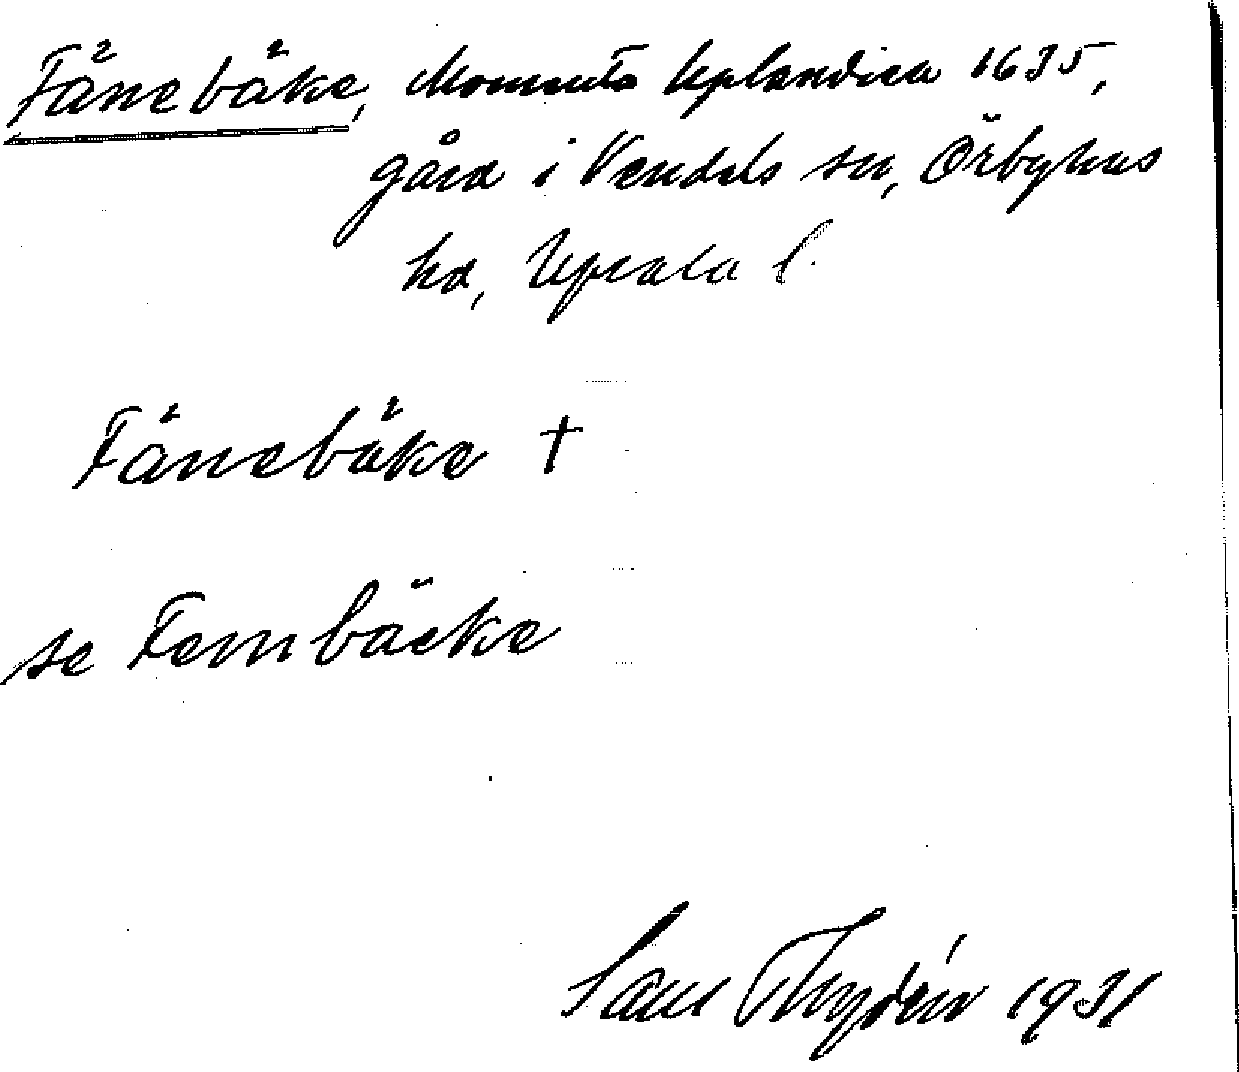 Fånebåke, Monumta Uplandica 1635,
gård i Vendels sn, Örbyhus
hd, Upsala l.
Fånebåke †
se Fembäcke
Sam Thydén 1931